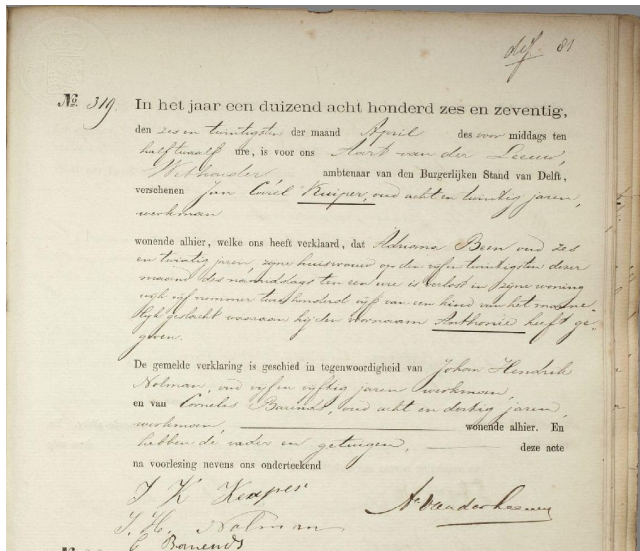 def. 81
No. 319. In het jaar een duizend acht honderd zes en zeventig,
den zes en twintigsten der maand April des voor middags ten
half twaalf ure, is voor ons Aart van der Leeuw,
Wethouder, ambtenaar van den Burgerlijken Stand van Delft,
verschenen Jan Kuiper, oud acht en twintig jaren,
werkman
wonende alhier, welke ons heeft verklaard, dat Adriana Been oud zes
en twintig jaren, zijne huisvrouw op den vijf en twintigsten dezer
maand des namiddags ten een ure is verlost in zijne woning
wijk vijf nummer twee honderd vijf van een kind van het manne-
lijk geslacht waaraan hij den voornaam Anthonie heeft ge-
geven.
De gemelde verklaring is geschied in tegenwoordigheid van Johan Hendrik
Nolman, oud vijf en vijftig jaren werkman,
en van Cornelis Barends, oud acht en dertig jaren,
werkman, wonende alhier. En
hebben de vader en getuigen, deze acte
na voorlezing nevens ons onderteekend
J K Kuiper
A. van der Leeuw
J. H. Nolman
C Barends